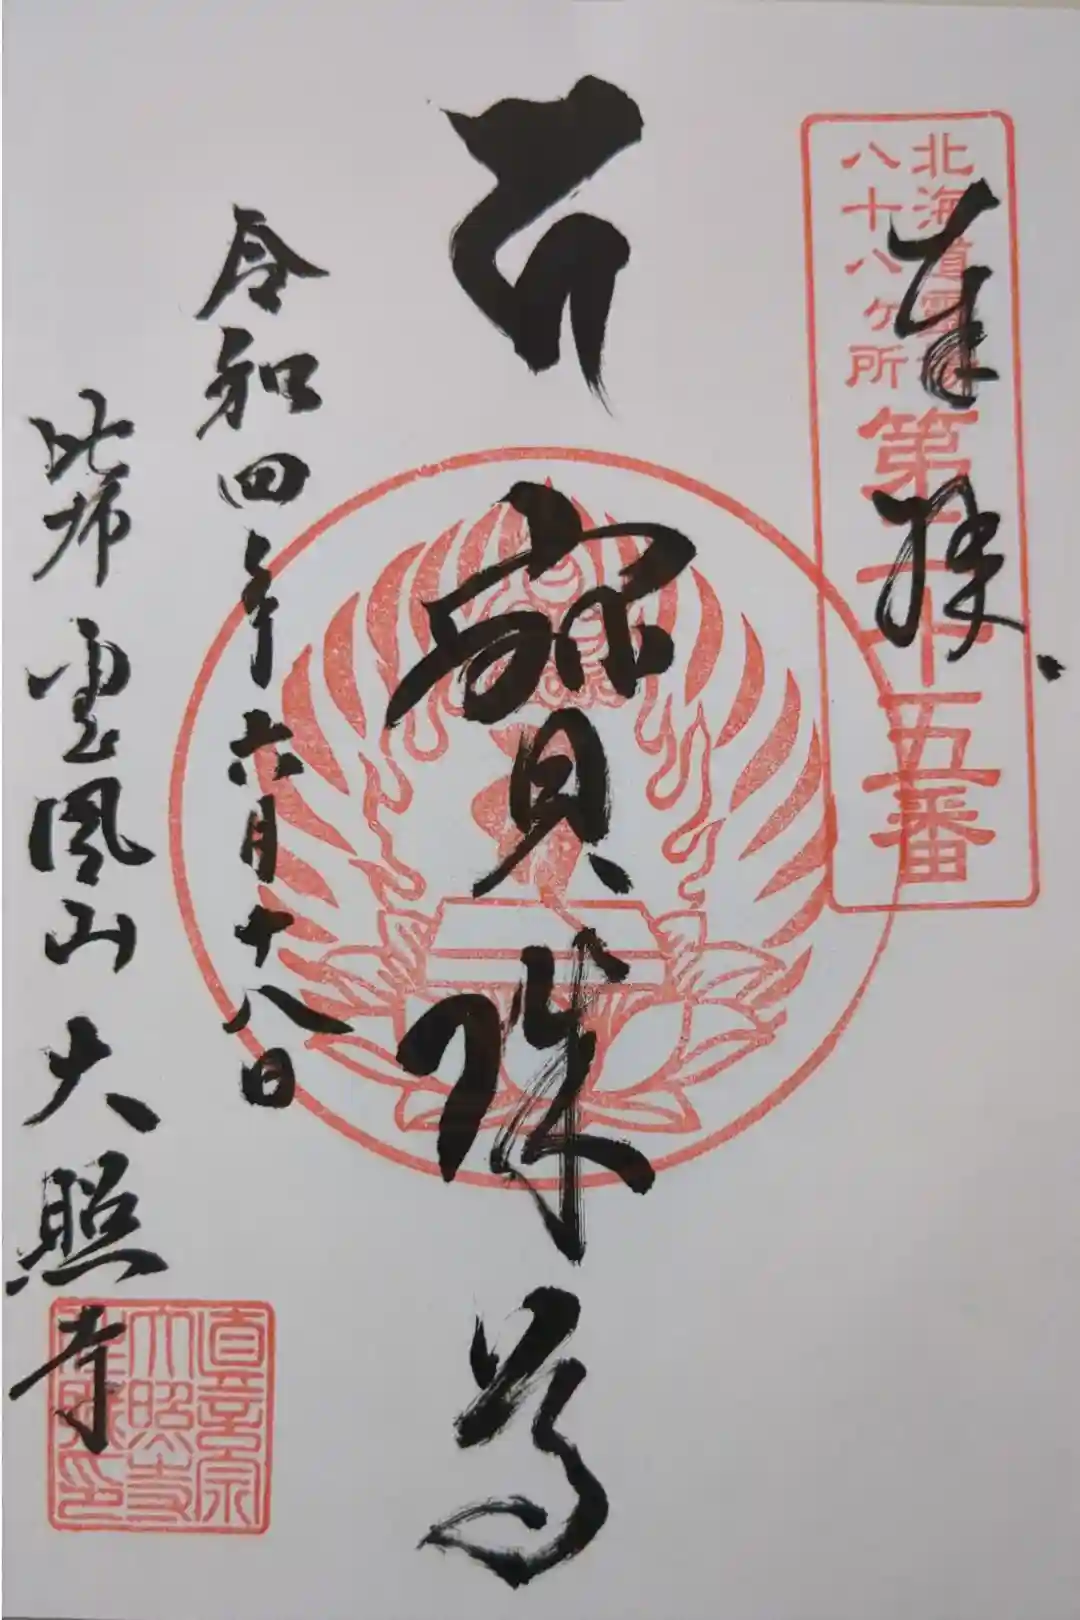 奉拝
北海道霊場
八十八ヶ所
第二十五番
寳珠尊
令和四年六月十八日
比布 雲風山 大照寺
真言宗
大照寺